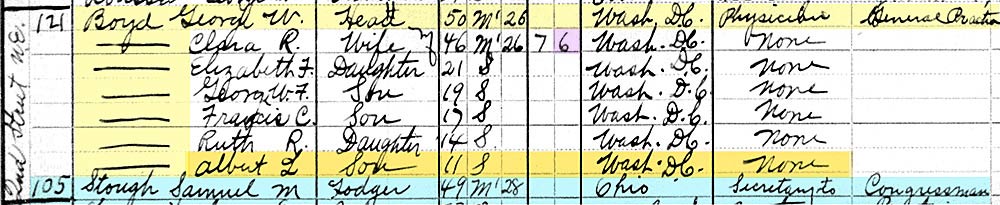 121 Boyd George W. Head 50 M' 26 Wash. DC. Physician General Practice
Clara R. Wife 46 M' 26 7 6 Wash. DC. None
Elizabeth F. Daughter 21 S Wash. DC. None
George W. F. Son 19 S Wash. D.C. None
Francis C. Son 17 S. Wash. D.C. None
Ruth R. Daughter 14 S. Wash. DC. None
Albert L Son 11 S Wash. DC. None
105 Stough Samuel M Lodger 49 M' 28 Ohio Secretary to Congressman
2nd Street N.E.